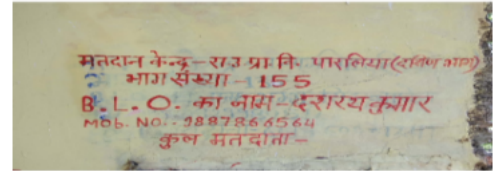 मतदान केन्द्र - रा उ प्रा वि पारलिया (दक्षिण भाग)
भाग संख्या - 155
B.L.O. का नाम - दशरथ कुमार
MOb. NO. - 9887866564
कुल मतदाता -